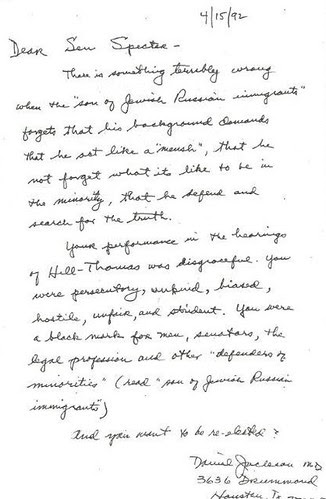 4/15/92
Dear Sen Specter -
There is something terribly wrong
when the "son of Jewish Russian immigrants"
forgets that his background demands
that he act like a "mensh", that he
not forget what it like to be in
the minority, that he defend and
search for the truth.
Your performance in the hearings
of Hill-Thomas was disgraceful. You
were persecutory, unkind, biased,
hostile, unfair, and strident. You were
a black mark for men, senators, the
legal profession and other "defenders of
minorities" (read "son of Jewish Russian
immigrants")
And you want to be re-elected?
Daniel Jackson MD
3636 Drummond
Houston, Tx